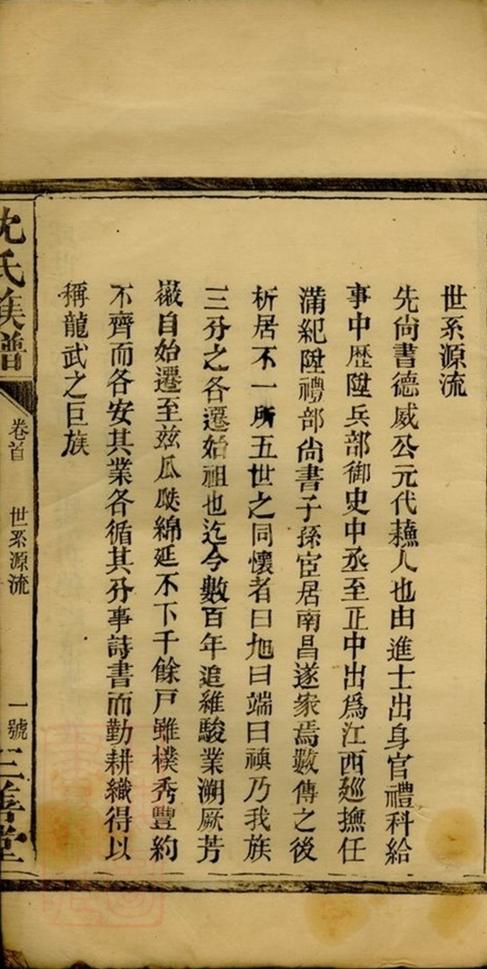 世系源流
先尚書德威公元代蘓人也由進士出身官禮科給
事中歷陞兵部御史中丞至正中出爲江西廵撫任
滿紀陞禮部尚書子孫宦居南昌遂家焉數傳之後
析居不一所五世之同懷者曰地曰端曰禎乃我族
三分之各遷始祖也迄今數百年追維駿業溯厥芳
徽自始遷至兹瓜瓞綿延不下千餘戸雖樸秀豐約
不齊而各安其業各循其分事詩書而勤耕織得以
稱龍武之巨族
沈氏族譜
卷首
世系源流
一號
三善堂